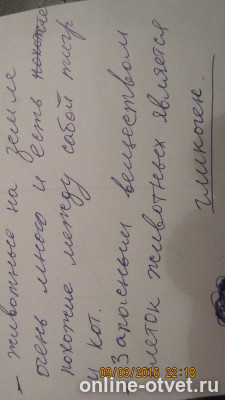 – животные на земле
очень много и есть
похожие между собой тигр
и кот.
– Запасным веществом
клеток животных является
гликоген.
22:18
online-otvet.ru